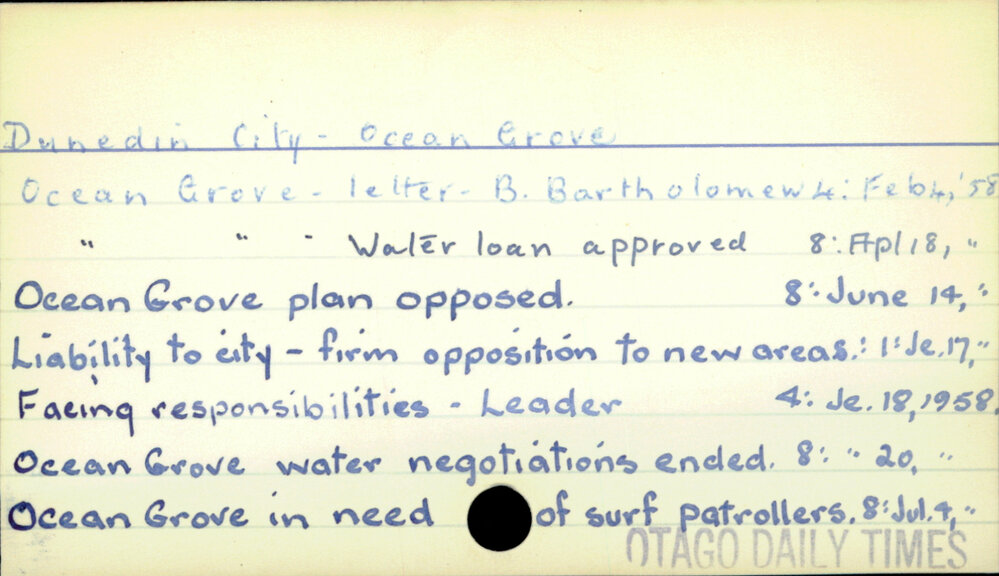 Dunedin City - Ocean Grove
Ocean Grove - letter - B. Bartholomew 4: Feb 4, '58
" " - Water loan approved 8: Apl 18, "
Ocean Grove plan opposed. 8: June 14, "
Liability to city - firm opposition to new areas.: 1: Je. 17, "
Facing responsibilities - Leader 4: Je. 18, 1958.
Ocean Grove water negotiations ended. 8: " 20, "
Ocean Grove in need of surf patrollers. 8: Jul. 4, "
OTAGO DAILY TIMES